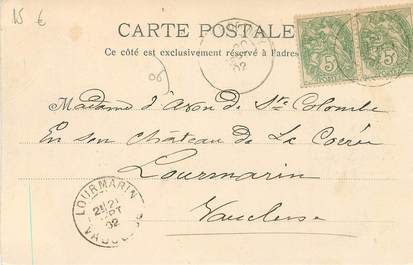 15 €
CARTE POSTALE
Ce côté est exclusivement réservé à l'adres
06
02
5
5
Madame d'Axon de Ste Colombe
En son château de La Corée
Lourmarin
Vaucluse
LOURMARIN
21
SEPT
02
VAUCLUSE